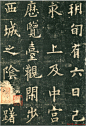 朔旬有六日己
亥上及中宮
歷覽臺觀閑步
西城之陰躊